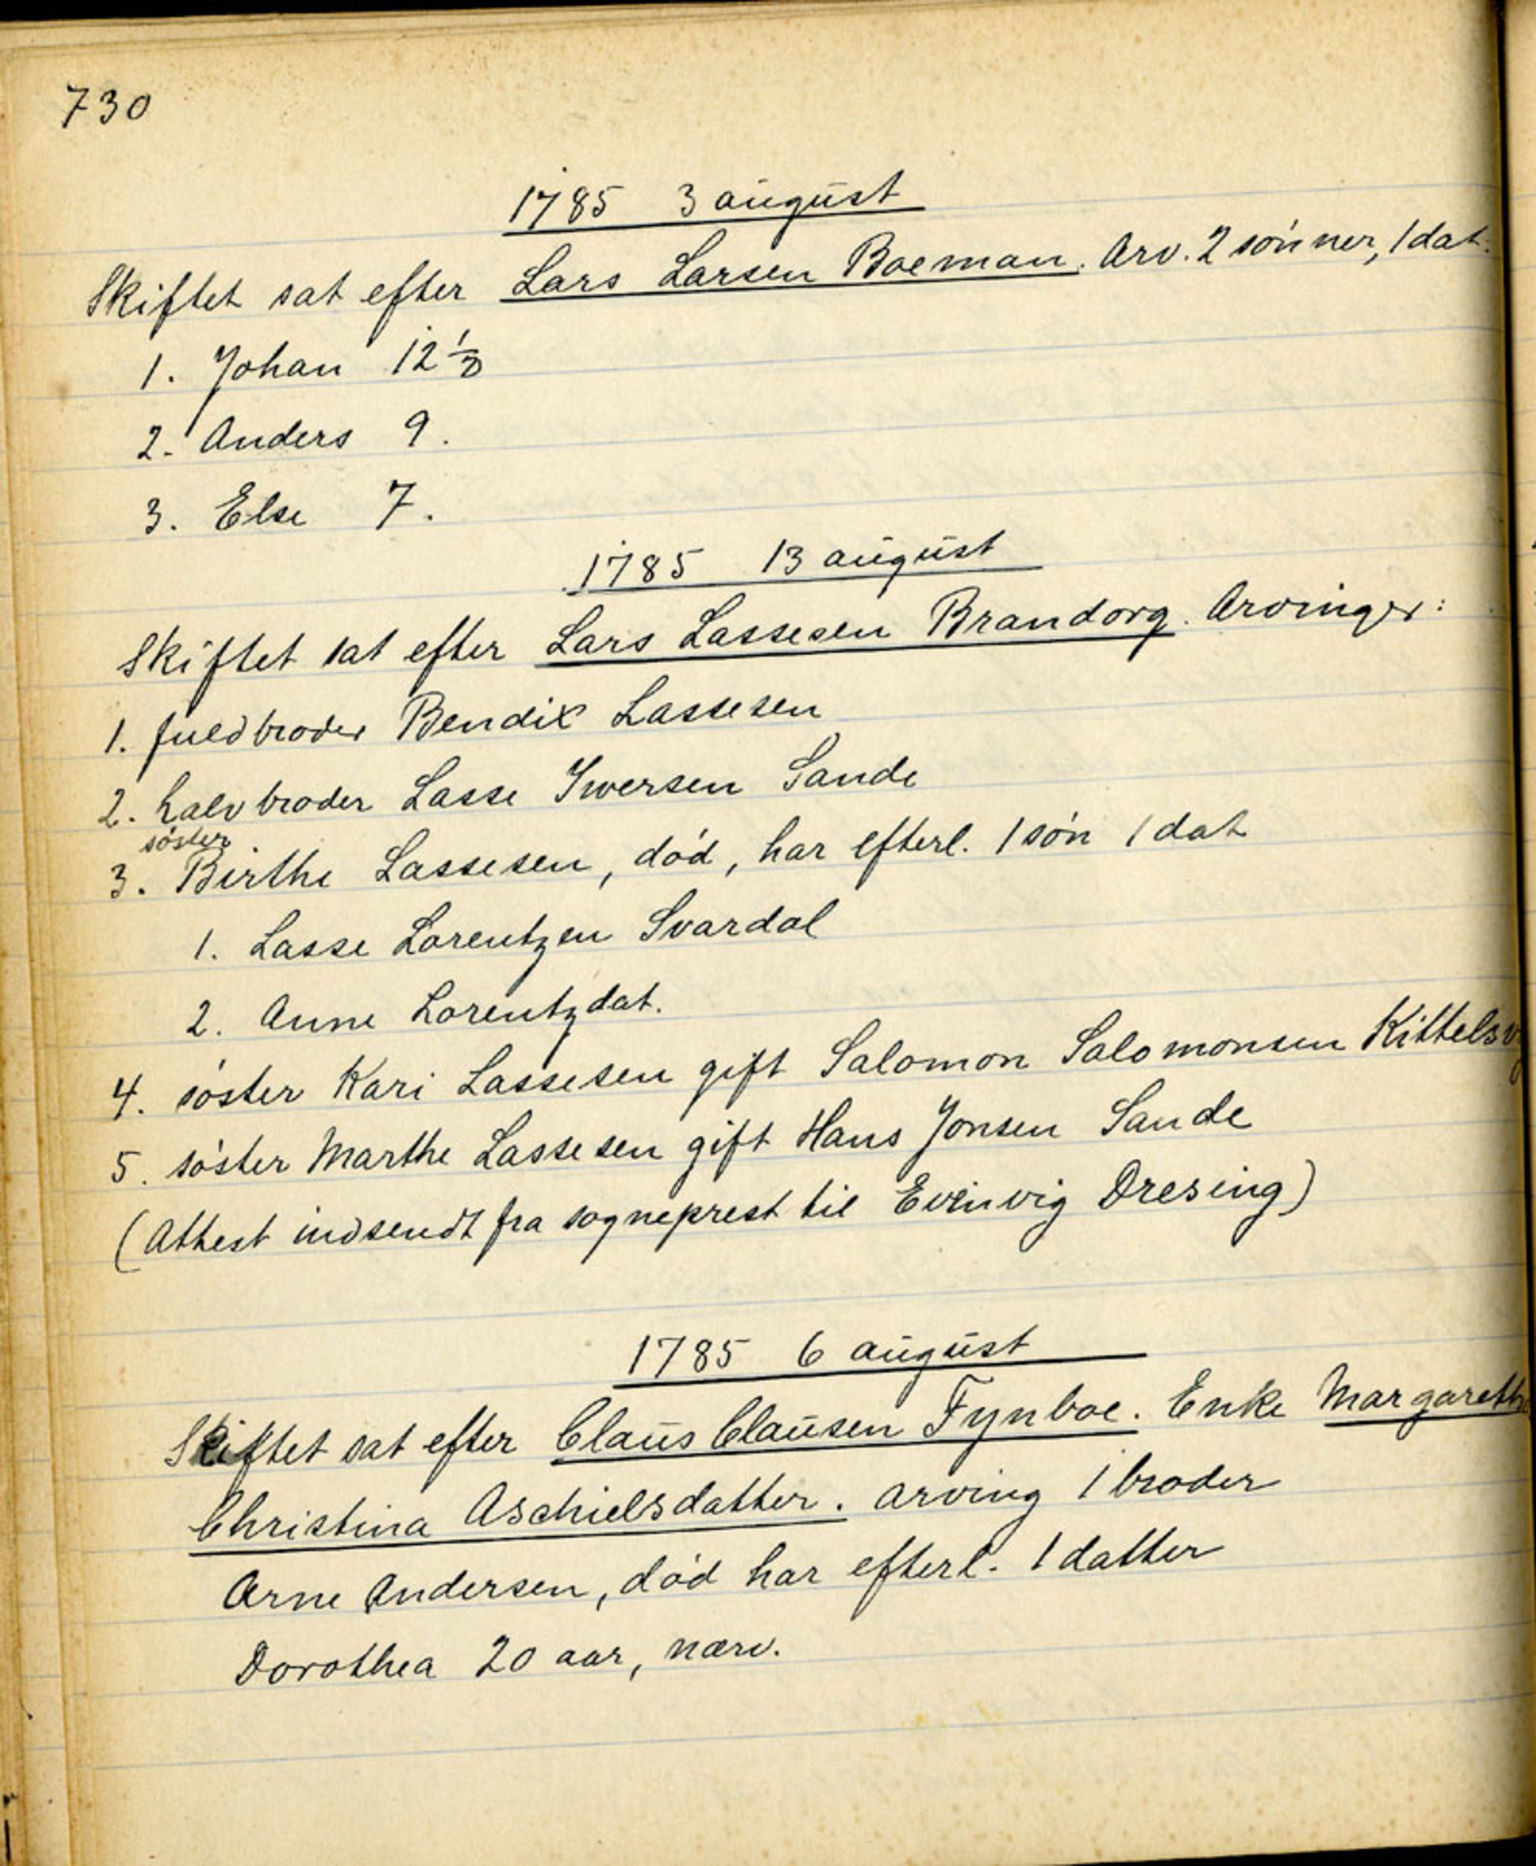 730
1785 3 august
Skiftet sat efter Lars Larsen Boeman. Arv. 2 sønner, 1 dat.
1. Johan 12 ½
2. Anders 9.
3. Else 7.
1785 13 august
Skiftet sat efter Lars Lassesen Brandorg. Arvinger:
1. fuldbroder Bendix Lassesen
2. halvbroder Lasse Iwersen Sande
søster
3. Birthe Lassesen, død, har efterl. 1 søn 1 dat
1. Lasse Lorentzen Svardal
2. Anne Lorentzdat.
4. søster Kari Lassesen gift Salomon Salomonsen
5. søster Marthe Lassesen gift Hans Jonsen Sande
(Attest indsendt fra sogneprest til Evinvig Dresing)
1785 6 august
Skiftet sat efter Claus Clausen Fynboe. Enke Margarethe
Christina Aschielsdatter. arving 1 broder
Arne Andersen, død har efterl. 1 datter
Dorothea 20 aar, nærv.